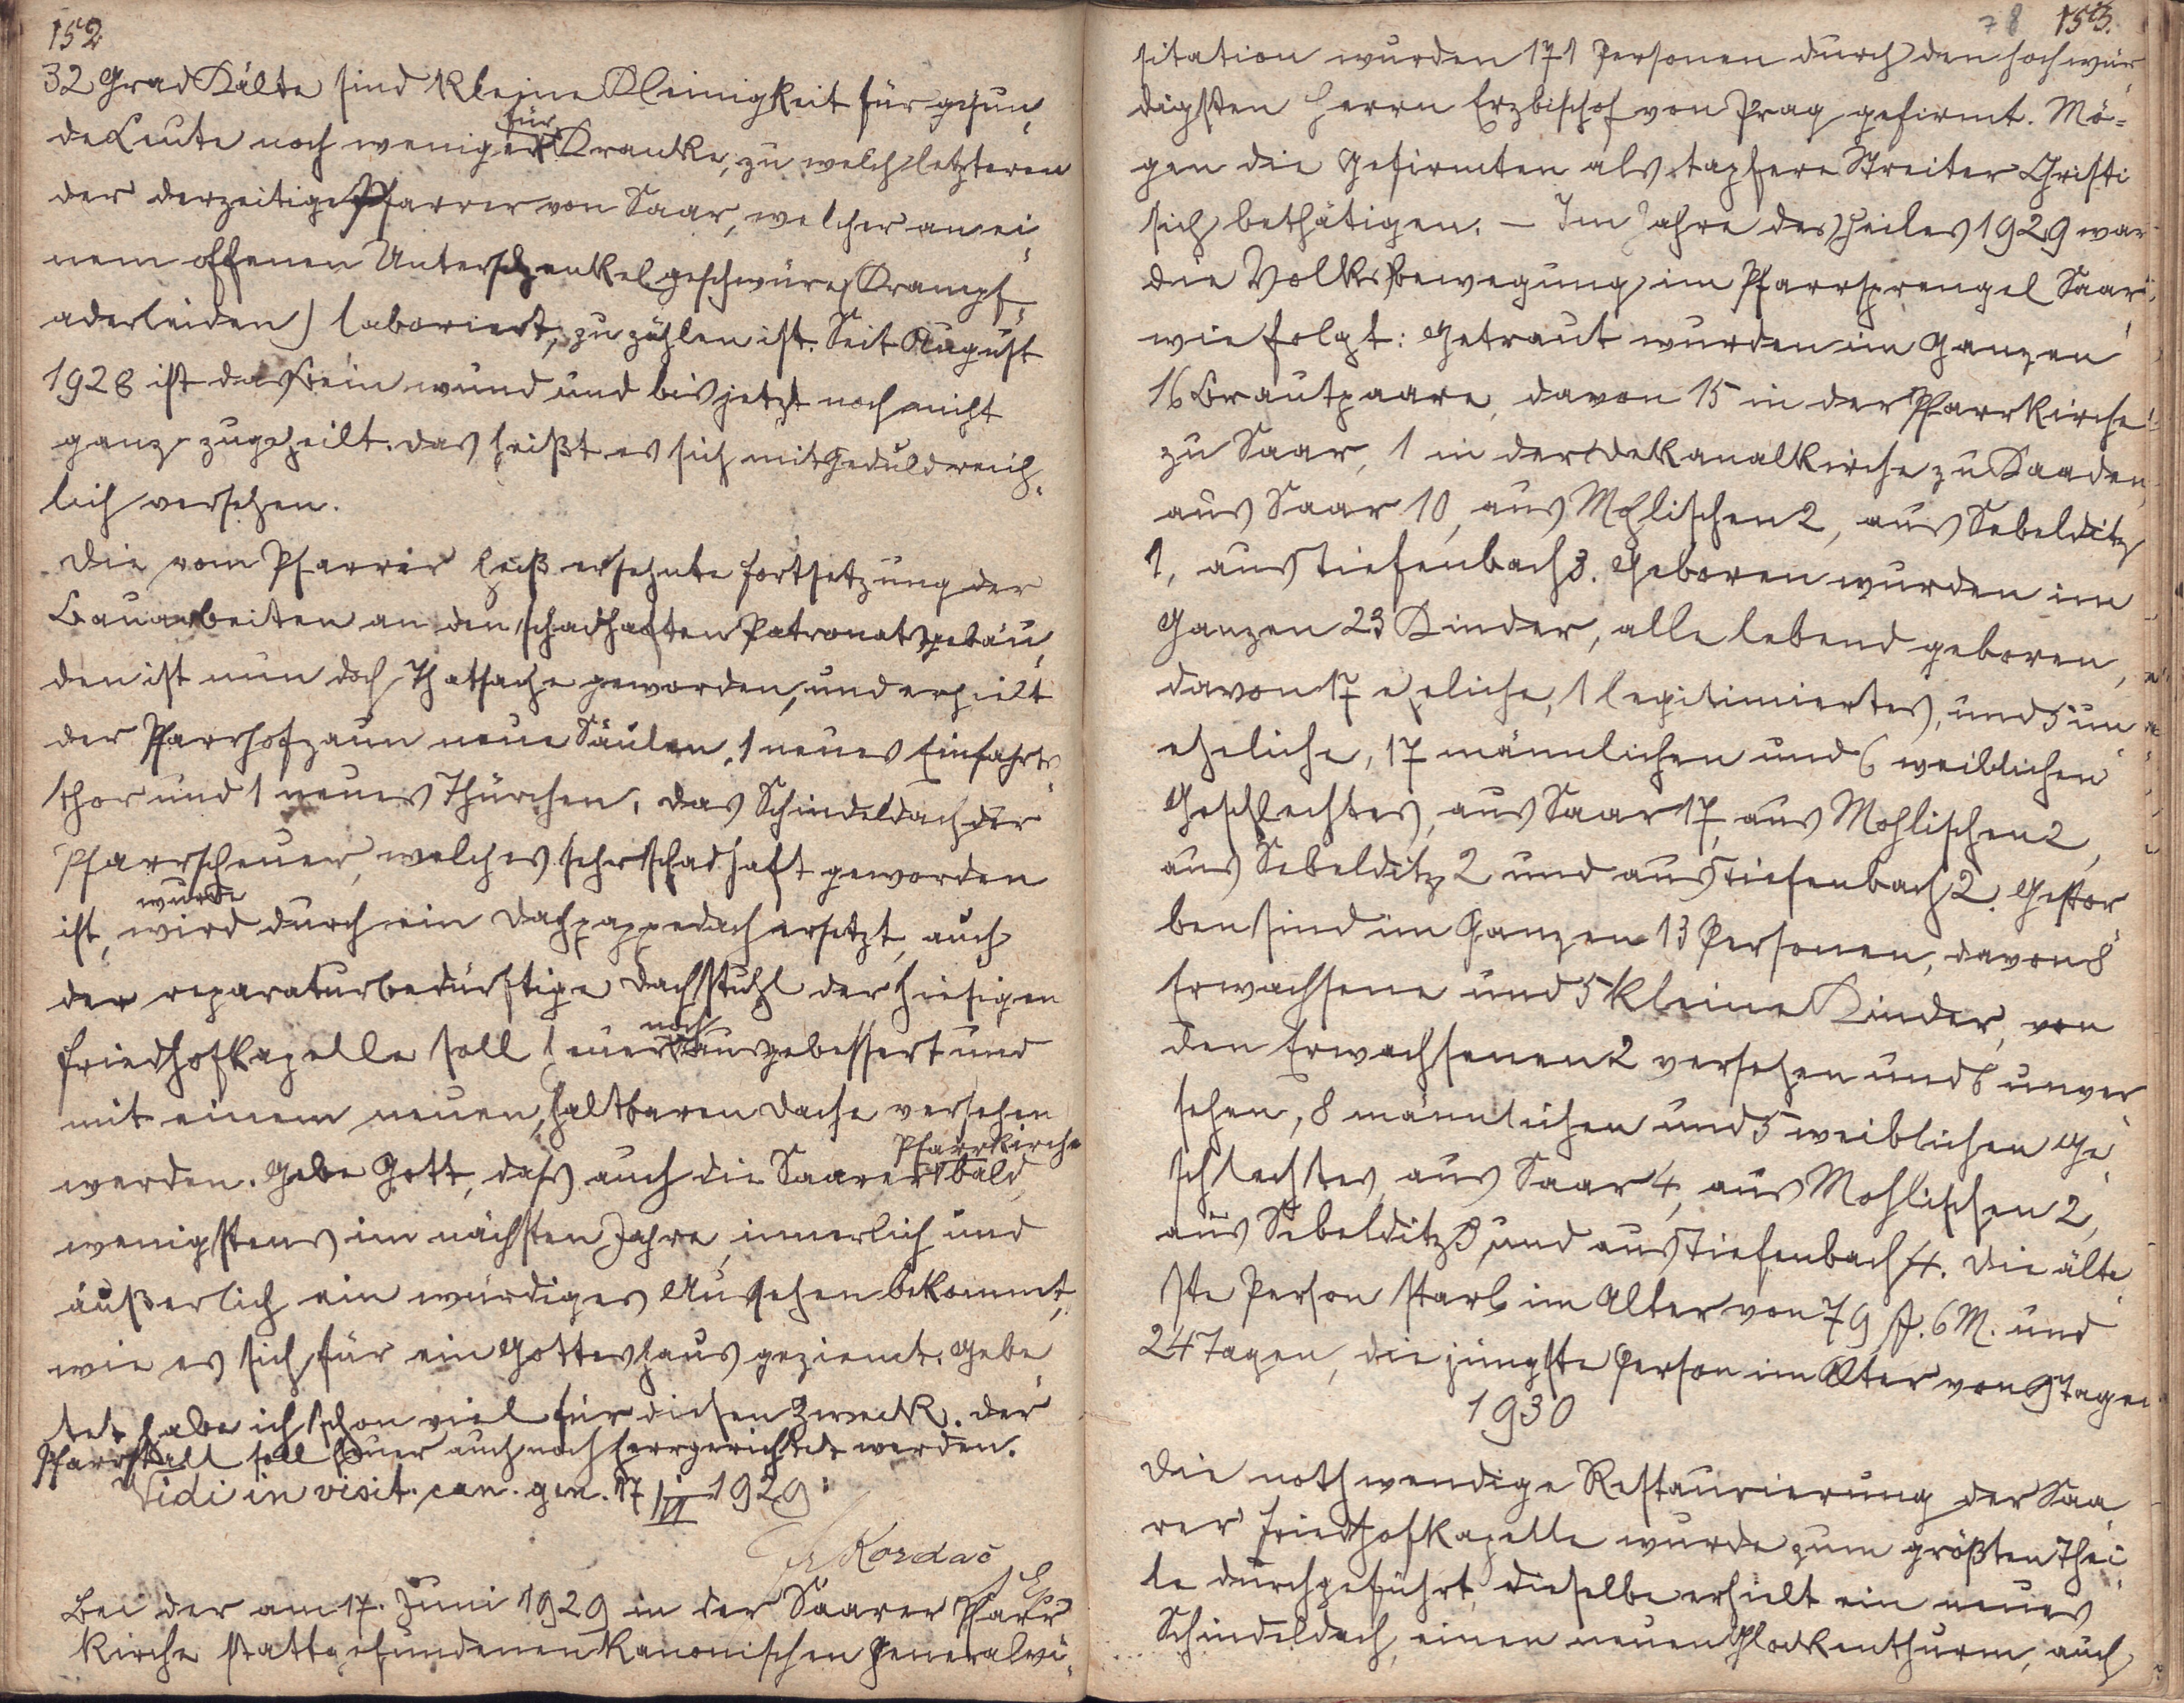 152
32 Grad Kälte sind kleine Kleinigkeit für gesun,
de Leute noch weniger für Kranke, zu welch letzteren
der derzeitige Pfarrer von Saar, welcher an ei,
nem offenen Unterschenkelgeschwüre (Krampf,
aderleiden) laboriert, zu zählen ist. Seit August
1928 ist das Bein wund und bis jetzt noch nicht
ganz zugeheilt. Das heißt es sich mit Geduld reich,
lich versehen.
Die vom Pfarrer heiß ersehnte Fortsetzung der
Bauarbeiten an den schadhaften Patronatsgebäu,
den ist nun doch Thatsache geworden, und erhielt
der Pfarrhofzaun neue Säulen, 1 neues Einfahrts,
thor und 1 neues Thürchen. Das Schindeldach der
Pfarrscheuer, welches sehr schadhaft geworden
ist, wird wurde durch ein Dachpappedach ersetzt, auch
der reparaturbedürftige Dachstuhl der hiesigen
Friedhofkapelle soll heuer noch ausgebessert und
mit einem neuen, haltbaren Dache versehen
werden. Gebe Gott, dass auch die Saarer Pfarrkirche bald,
wenigstens im nächsten Jahre, innerlich und
äußerlich ein würdiges Aussehen bekommt,
wie es sich für ein Gotteshaus geziemt. Gebe,
tet habe ich schon viel für diesen Zweck. Der
Pfarrstall soll heuer auch noch herrgerichtet werden.
Vidi in visit. can. gen. 17/VI 1929:
Fr Kordač
Bei der am 17. Juni 1929 in der Saarer Pfarr
kirche stattgefundenen kanonischen Generalvi,
78 153.
sitation wurden 171 Personen durch den hochwür,
digsten Herrn Erzbischof von Prag gefirmt. Mö-
gen die Gefirmten als tapfere Streiter Christi
sich bethätigen. – Im Jahre des Heiles 1929 war
die Volksbewegung im Pfarrsprengel Saar
wie folgt: Getraut wurden im Ganzen
16 Brautpaare, davon 15 in der Pfarrkirche
zu Saar, 1 in der Dekanalkirche zu Kaaden,
aus Saar 10, aus Mohlischen 2, aus Sebelditz
1, aus Tiefenbach 3. Geboren wurden im
Ganzen 23 Kinder, alle lebend geboren,
davon 17 eheliche, 1 legitimiertes, und 5 un
eheliche, 17 männlichen und 6 weiblichen
Geschlechtes, aus Saar 17, aus Mohlischen 2,
aus Sebelditz 2 und aus Tiefenbach 2. Gestor
ben sind im Ganzen 13 Personen, davon 8
Erwachsene und 5 kleine Kinder, von
den Erwachsenen 2 versehen und 6 unver
sehen, 8 männlichen und 5 weiblichen Ge,
schlechtes, aus Saar 4, aus Mohlischen 2,
aus Sebelditz 3, und aus Tiefenbach 4. Die älte,
ste Person starb im Alter von 79 J. 6 M. und
24 Tagen, die jüngste Person im Alter von 9 Tagen
1930
Die nothwendige Restaurierung der Saa,
rer Friedhofkapelle wurde zum größten Thei,
le durchgeführt, dieselbe erhielt ein neues
Schindeldach, einen neuen Glockenthurm, auch